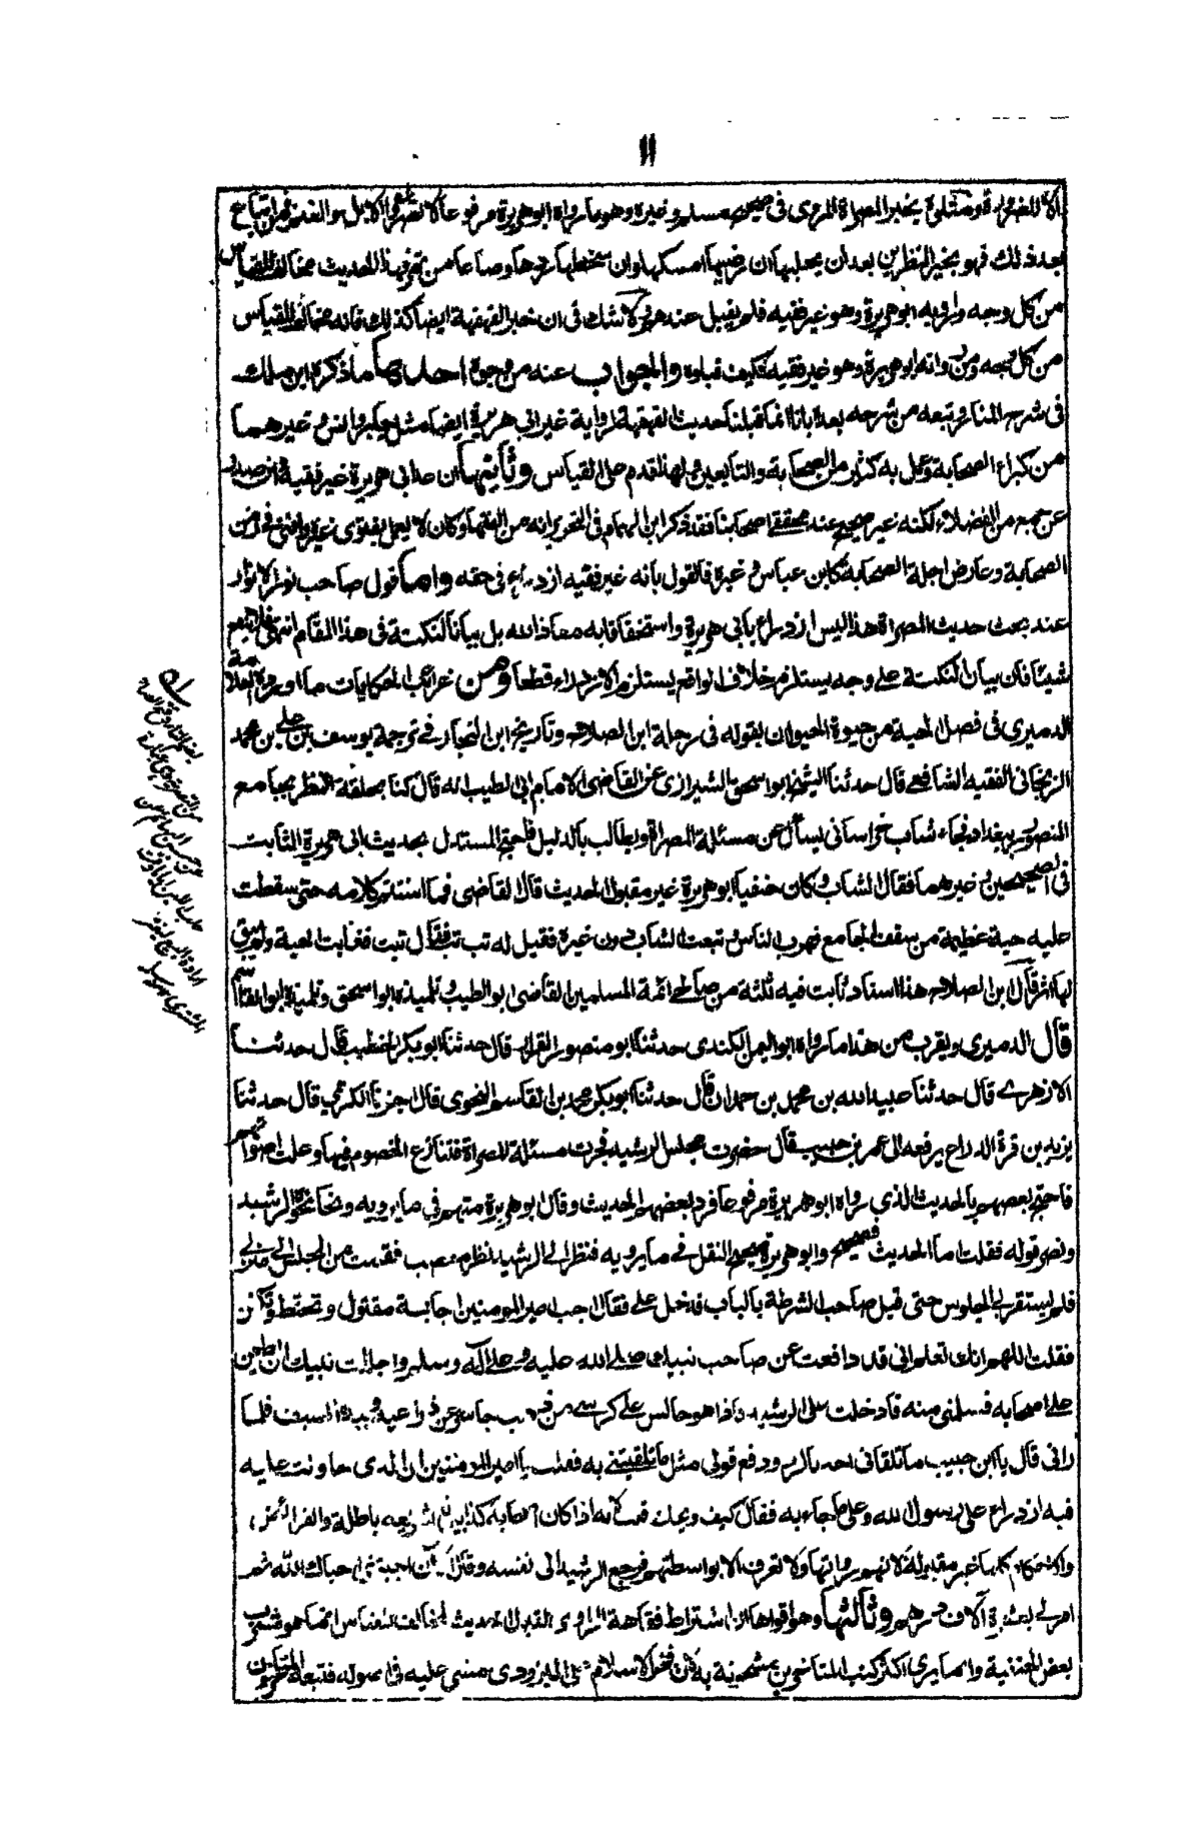 ١١
للضرورة ومثلوه بخبر المصراة المروى فى صحيح مسلم وغيره وهو ما رواه ابو هريرة مرفوعا لا تصروا الابل والغنم فمن ابتاع
بعد ذلك فهو بخير النظرين بعد ان يحلبها ان رضيها امسكها وان سخطها ردها وصاعا من تمر فهذا الحديث مخالف للقياس
من كل وجه وراويه ابو هريرة وهو غير فقيه فلم يقبل عندهم ولا شك فى ان خبر القهقهة ايضا كذلك فانه مخالف للقياس
من كل وجه ومن رواته ابو هريرة وهو غير فقيه فكيف قبلوه والجواب عنه من وجوه احدها ما ذكره ابن ملك
فى شرح المنار وتبعه من شرحه بعده بانا انما قبلنا حديث القهقهة لرواية غير ابى هريرة ايضا مثل جابر وانس وغيرهما
من كبراء الصحابة وعمل به كثير من الصحابة والتابعين ولهذا قدم على القياس وثانيها ان عد ابى هريرة غير فقيه وان صدر
عن جمع من الفضلاء لكنه غير صحيح عند محققى اصحابنا فقد ذكر ابن الهمام فى التحرير انه من الفقهاء وكان لا يعمل بفتوى غيره وافتى فى زمن
الصحابة وعارض اجلة الصحابة كابن عباس وغيره فالقول بانه غير فقيه ازدراء فى حقه واما قول صاحب نور الانوار
عند بحث حديث المصراة هذا ليس ازدراء بابى هريرة واستخفافا به معاذ الله بل بيانا لنكتة فى هذا المقام انتهى فلا يفهم
شيئا فان بيان النكتة على وجه يستلزم خلاف الواقع يستلزم الازدراء قطعا ومن غرائب الحكايات ما اورده العلامة
الدميرى فى فصل الحية من حيوة الحيوان بقوله فى رحلة ابن الصلاح وتاريخ ابن النجار فى ترجمة يوسف بن على بن محمد
الزنجانى الفقيه الشافعى قال حدثنا الشيخ ابو اسحق الشيرازى عن القاضى الامام ابى الطيب انه قال كنا بحلقة النظر بجامع
المنصور ببغداد فجاء شاب خراسانى يسأل عن مسئلة المصراة ويطالب بالدليل فاحتج المستدل بحديث ابى هريرة الثابت
فى الصحيحين وغيرهما فقال الشاب وكان حنفيا ابو هريرة غير مقبول الحديث قال القاضى فما استتم كلامه حتى سقطت
عليه حية عظيمة من سقف الجامع فهرب الناس وتبعت الشاب دون غيره فقيل له تب تب فقال تبت فغابت الحية ولم يبق
لها اثر قال ابن الصلاح هذا اسناد ثابت فيه ثلثة من صالحى ائمة المسلمين القاضى ابو الطيب وتلميذه ابو اسحق وتلميذه ابو القاسم
قال الدميرى ويقرب من هذا ما رواه ابو اليمن الكندى حدثنا ابو منصور القزاز قال حدثنا ابو بكر الخطيب قال حدثنا
الازهرى قال حدثنا عبيد الله بن محمد بن حمدان قال حدثنا ابو بكر محمد بن القاسم النحوى قال اخبرنا الكريمى قال حدثنا
يزيد بن قرة الدراح يرفعه الى عمر بن حبيب قال حضرت مجلس الرشيد فجرت مسئلة المصراة فتنازع الخصوم فيها وعلت اصواتهم
فاحتج بعضهم بالحديث الذى رواه ابو هريرة مرفوعا فرد بعضهم الحديث وقال ابو هريرة متهم فى ما يرويه ونحا نحوه الرشيد
ونصر قوله فقلت اما الحديث فصحيح وابو هريرة صحيح النقل فى ما يرويه فنظر الى الرشيد نظر مغضب فقمت من المجلس الى منزلى
فلم يستقر بى الجلوس حتى قيل صاحب الشرطة بالباب فدخل على فقال اجب امير المؤمنين اجابة مقتول وتحنط وتكفن
فقلت اللهم انك تعلم انى قد دافعت عن صاحب نبيك صلى الله عليه وعلى آله وسلم واجللت نبيك ان يطعن
على اصحابه فسلمنى منه فادخلت على الرشيد فاذا هو جالس على كرسى من ذهب حاسر عن ذراعيه وبيده السيف فلما
رانى قال يا ابن حبيب ما تلقانى احد بالرد ودفع قولى مثل ما تلقيتنى به فقلت يا امير المؤمنين ان الذى حاولت عليه
فيه ازدراء على رسول الله وعلى ما جاء به فقال كيف ويحك قلت لانه اذا كان اصحابه كذابين فالشريعة باطلة والفرائض
والاحكام كلها غير مقبولة لانهم رواتها ولا تعرف الا بواسطتهم فرجع الرشيد الى نفسه وقال الآن احييتنى احياك الله ثم
امر لى بعشرة آلاف درهم وثالثها وهو اقواها ان اشتراط فقاهة الراوى لقبول الحديث المخالف للقياس انما هو مشرب
بعض الحنفية وانما يرى اكثر كتب المتاخرين مشحونة به لان فخر الاسلام على البزدوى مشى عليه فى اصوله فتبعه المتاخرون